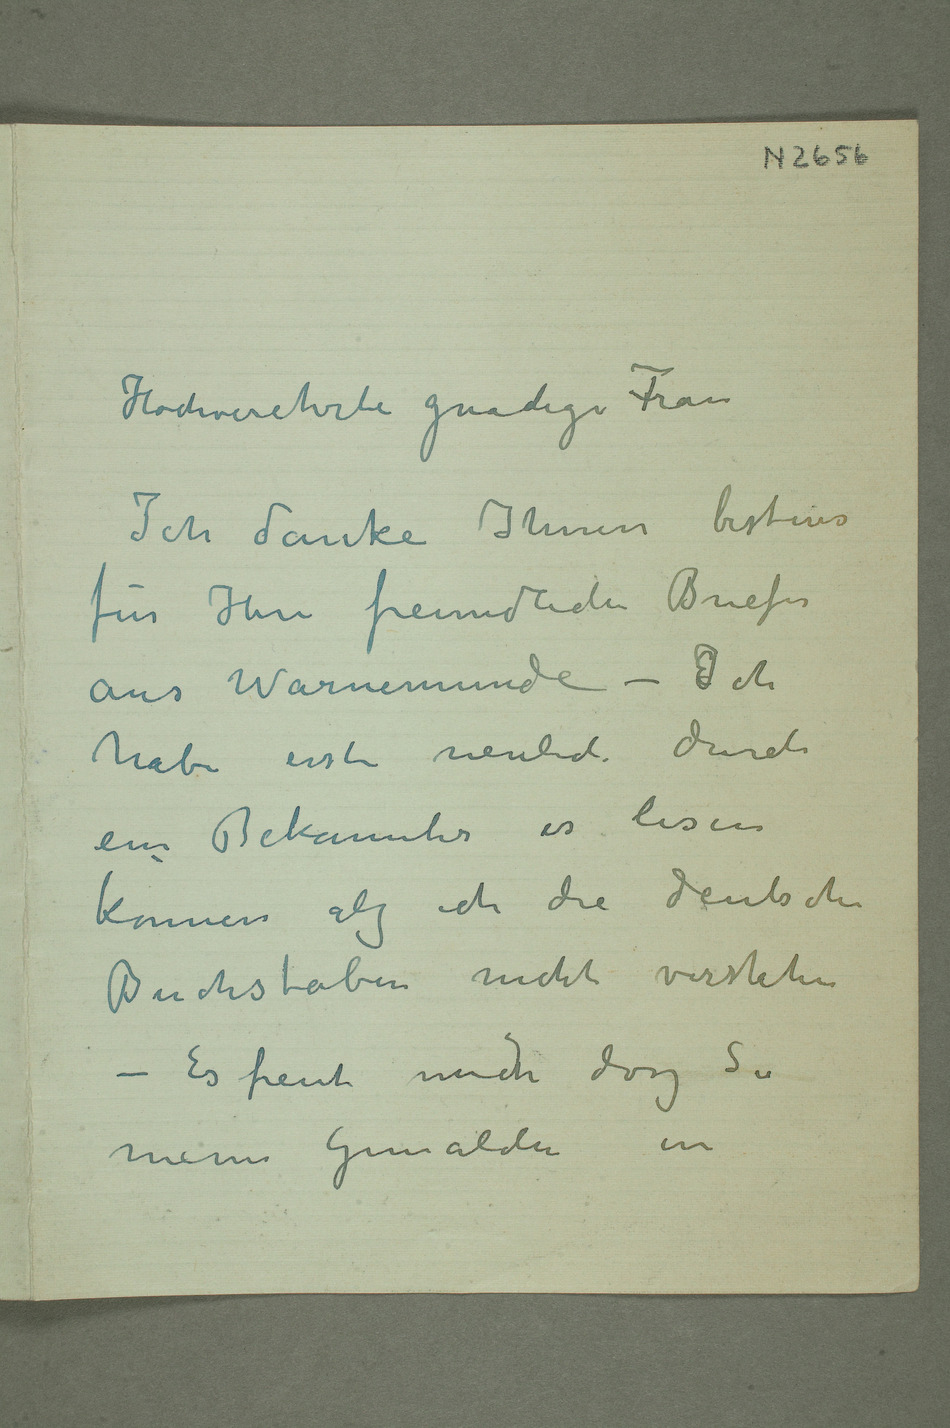 N 2656
Hochverehrte gnadige Frau
Ich danke Ihnen bestens
für Ihre freundliche Briefes
aus Warnemunde – Ich
habe erste neulich durch
ein Bekannter es lesen
können alß ich die deutsche
Buchstaben nicht verstehe
– Es freut mich daß Sie
meine Gemälde in